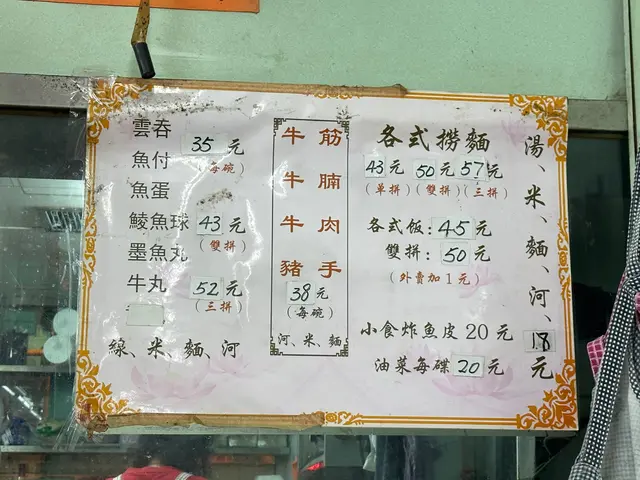 雲吞
魚付
魚蛋
鯪魚球
墨魚丸
牛丸
35元
(每碗)
43元
(雙拼)
52元
(三拼)
線、米、麵、河
牛筋
牛腩
牛肉
豬手
38元
(每碗)
河、米、麵
各式撈麵
43元 50元 57元
(单拼)(雙拼)(三拼)
各式饭:45元
雙拼:50元
(外賣加1元)
小食炸魚皮20元
油菜每碟20元
湯、米、麵、河、18元